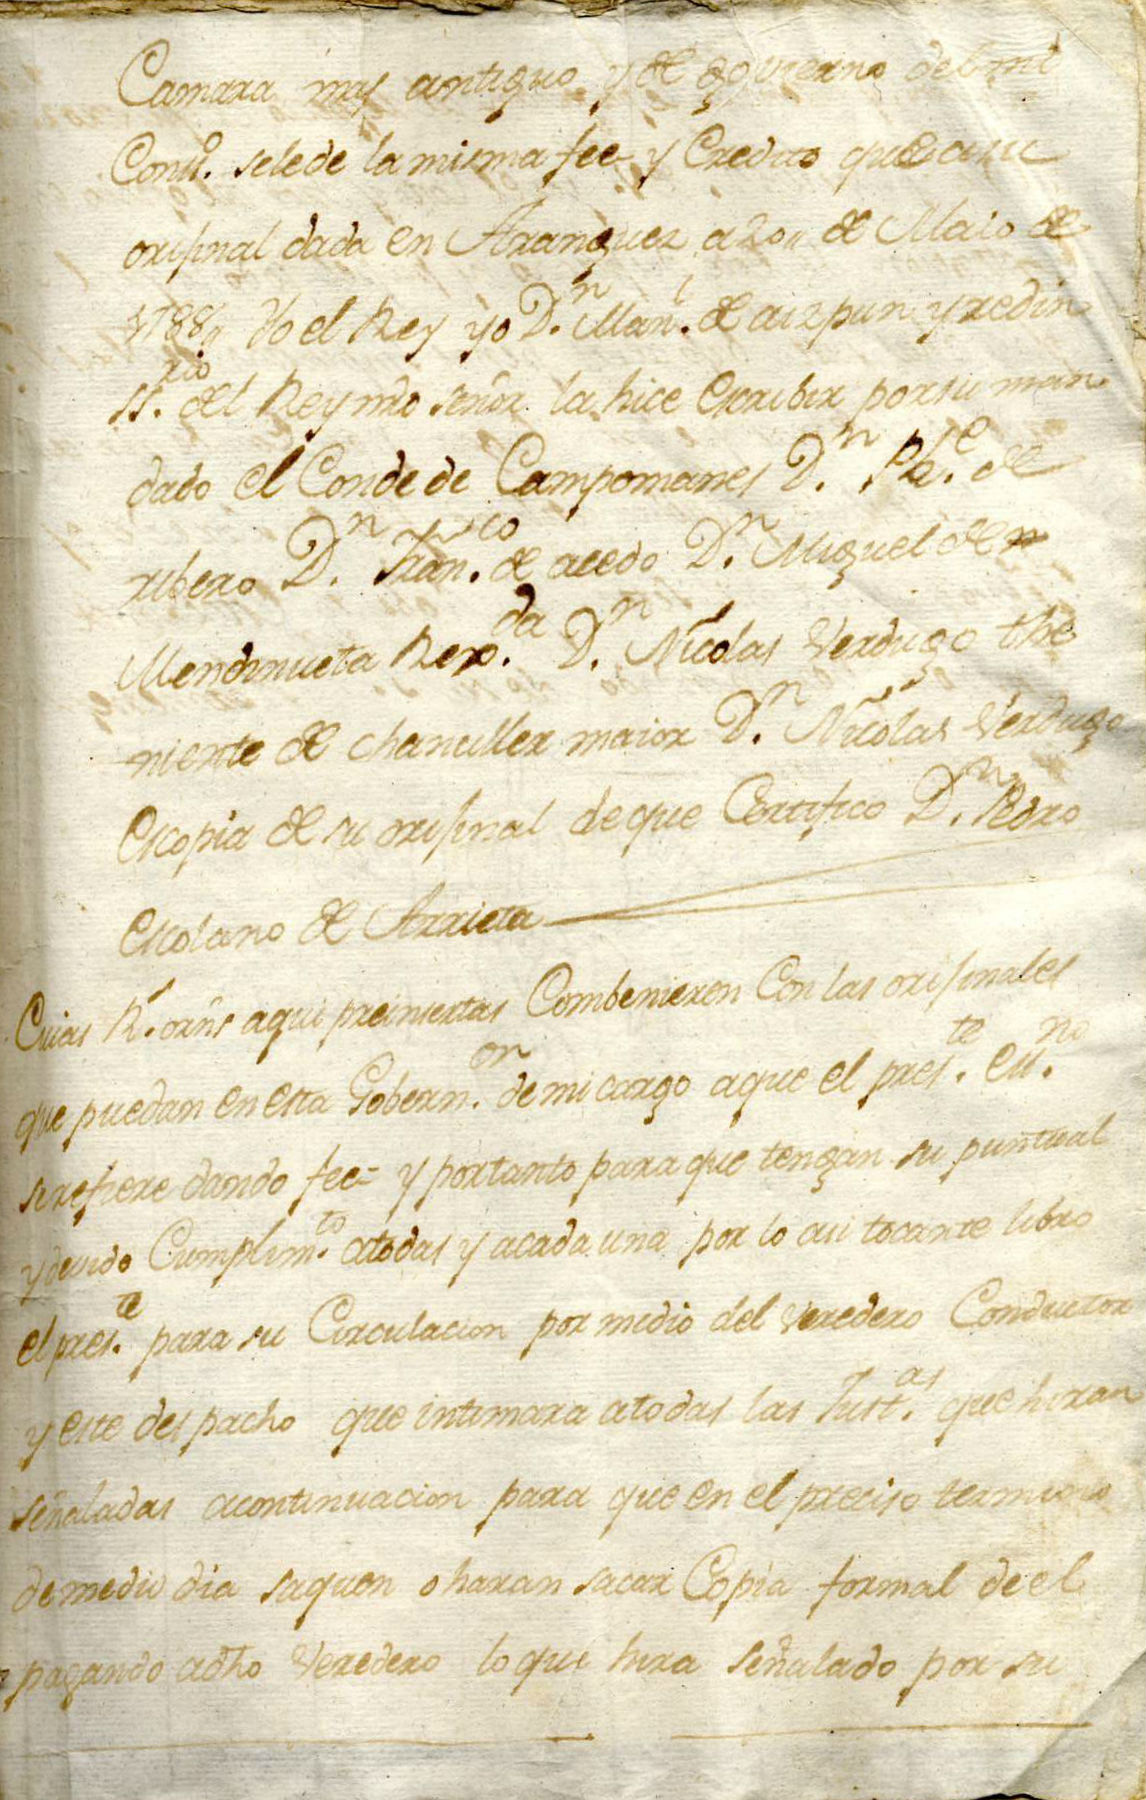 Camara mas antiguo y de govierno del mi
Cons.o se le de la misma fee y Credito que a su
orijinal dada en Aranguez a 20,, de Maio de
1788,, Yo el Rey yo D.n Man.l de aizpun y redin
ss.rio del Rey nro señor la hice escribir por su man
dado el Conde de Campomanes D.n Ph.e de
ribero D.n Fran.co de acedo D.n Miguel de
Mendinueta Rexp.da D.n Nicolas Verdugo the
niente de chanciller maior D.n Nicolas Verdugo
es copia de su orijinal de que Certifico D.n Pedro
escolano de Arrieta
Cuias R.s orns aqui preinsertas Combenieron Con las orijinales
que puedan en esta Gobern.on de mi cargo a que el pres.te es.no
se refiere dando fee= y por tanto para que tengan su puntual
y devido Cumplim.to a todas y a cada una por lo asi tocante libro
el pres.te para su Circulacion por medio del veredero Conductor
y este despacho que intimara a todas las Just.as que hiran
señaladas a continuacion para que en el preciso termino
de medio dia saquen o haran sacar Copia formal de el
pagando a dho Veredero lo que hira señalado por su